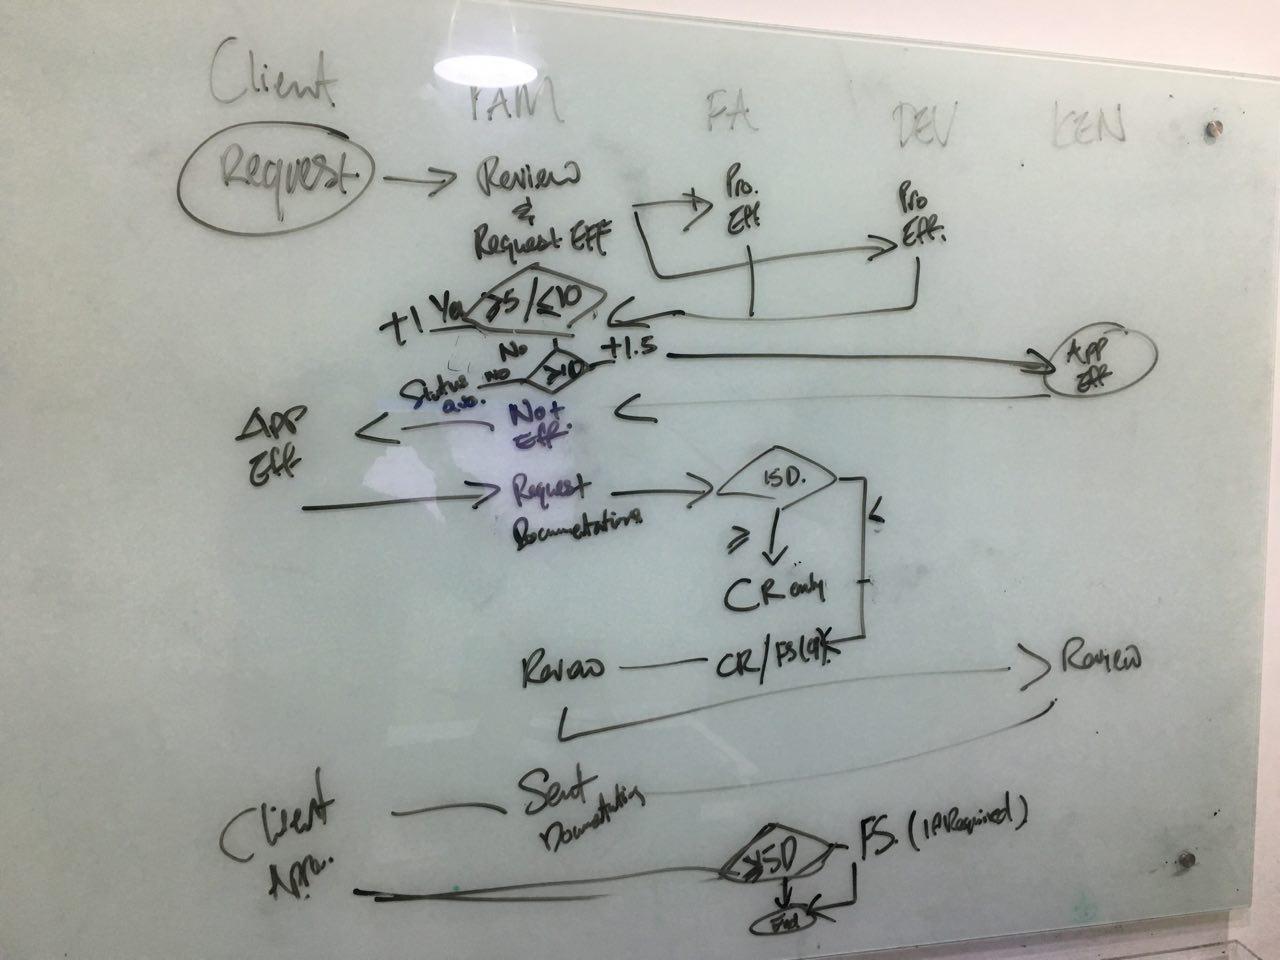 Client PAM FA DEV KEN
Request
Review
&
Request EFF
Pro.
Eff.
Pro
Eff.
≥5/≤10
+1 Yes
No
+1.5
No
>10
APP
Eff
Status
Not
Eff.
APP
Eff
Request
Documentations
15D.
<
≥
CR only
Review
CR/FS(if)
Review
Sent
Documentation
Client
Appr.
≥15D
FS. (if Required)
End